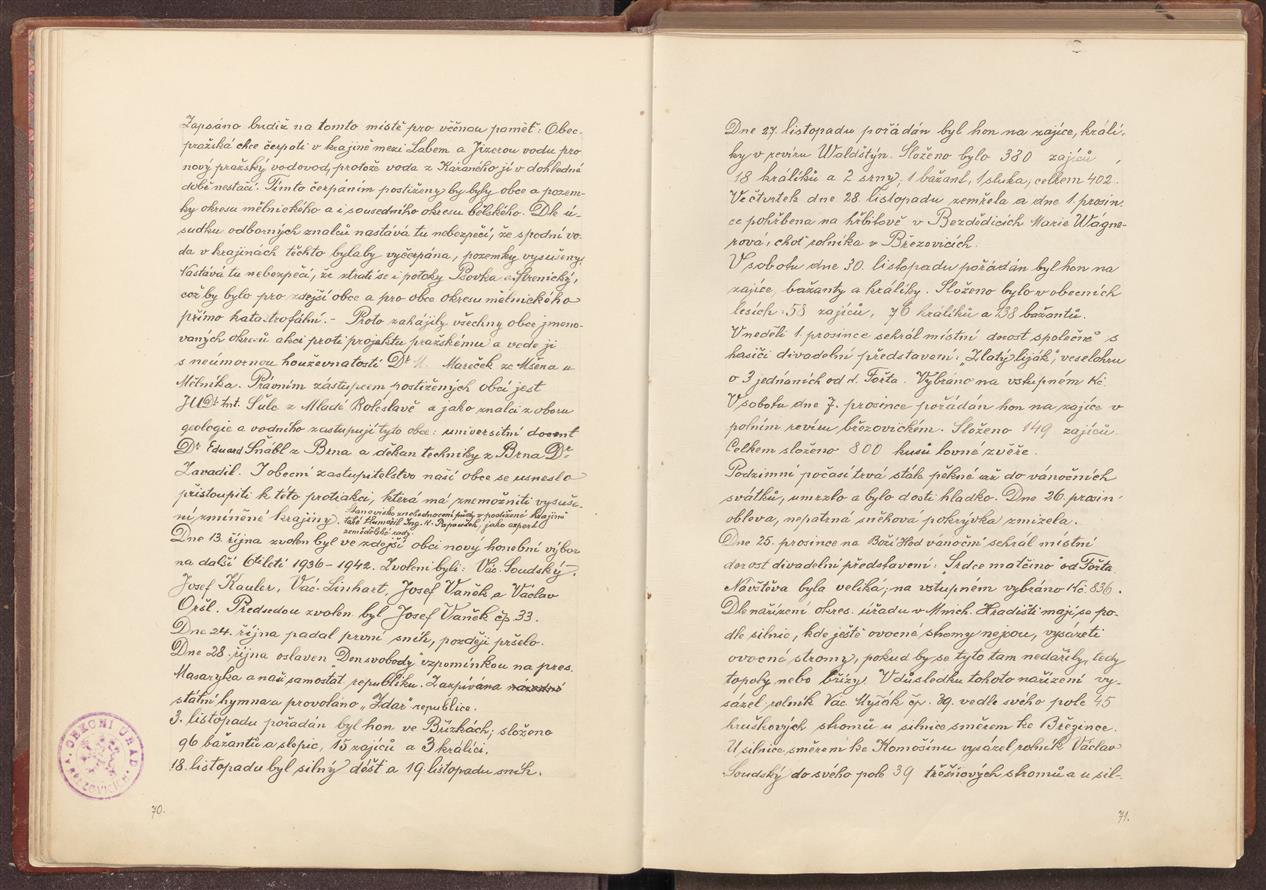 Zapsáno budiž na tomto místě pro věčnou paměť: Obec
pražská chce čerpati v krajině mezi Labem a Jizerou vodu pro
nový pražský vodovod, protože voda z Káraného jí v dohledné
době nestačí. Tímto čerpáním postiženy by byly obce a pozem-
ky okresu mělnického a i sousedního okresu bělského. Dle ú-
sudku odborných znalců nastává tu nebezpečí, že spodní vo-
da v krajinách těchto byla by vyčerpána, pozemky vysušeny.
Nastává tu nebezpečí, že ztratí se i potoky Pšovka a Strenický,
což by bylo pro zdejší obce a pro obce okresu mělnického
přímo katastrofální. - Proto zahájily všechny obce jmeno-
vaných okresů akci proti projektu pražskému a vede ji
s neúmornou houževnatostí Dr. Mareček ze Mšena u
Mělníka. Právním zástupcem postižených obcí jest
JUDr. Ant. Šulc z Mladé Boleslavě a jako znalci z oboru
geologie a vodního zastupují tyto obce: universitní docent
Dr. Eduard Šnábl z Brna a děkan techniky z Brna Dr.
Zavadil. I obecní zastupitelstvo naší obce se usneslo
přistoupiti k této protiakci, která má znemožniti vysuše-
ní zmíněné krajiny. Stanovisko znehodnocení půdy v postižené krajině
také tlumočil Ing. K. Papoušek, jako expert
zemědělské rady.
Dne 13. října zvolen byl ve zdejší obci nový honební výbor
na další 6ti letí 1936 - 1942. Zvoleni byli: Vác. Soudský,
Josef Kauler, Vác. Linhart, Josef Vaněk a Václav
Oršl. Předsedou zvolen byl Josef Vaněk čp 33.
Dne 24. října padal první sníh, později pršelo.
Dne 28. října oslaven "Den svobody" vzpomínkou na pres.
Masaryka a naši samostat. republiku. Zazpívána národní
státní hymna a provoláno "Zdar" republice.
3. listopadu pořádán byl hon ve Bŕízkách, složeno
96 bažantů a slepic, 15 zajíců a 3 králíci.
18. listopadu byl silný déšť a 19. listopadu sníh.
70.
OBECNÍ ÚŘAD
Dne 27. listopadu pořádán byl hon na zajíce, králí-
ky v revíru Waldštýn. Složeno bylo 380 zajíců,
18 králíků a 2 srny, 1 bažant, 1 sluka, celkem 402.
Ve čtvrtek dne 28. listopadu zemřela a dne 1. prosin-
ce pohřbena na hřbitově v Bezdědicích Marie Wagne-
rová, choť rolníka v Březovicích.
V sobotu dne 30. listopadu pořádán byl hon na
zajíce, bažanty a králíky. Složeno bylo v obecních
lesích: 58 zajíců, 76 králíků a 238 bažantů.
V neděli 1. prosince sehrál místní dorost společně s
hasiči divadelní představení: "Zlatý liják", veselohru
o 3 jednáních od A. Fořta. Vybráno na vstupném Kč
V sobotu dne 7. prosince pořádán hon na zajíce v
polním revíru březovickém. Složeno 149 zajíců.
Celkem složeno 800 kusů lovné zvěře.
Podzimní počasí trvá stále pěkné až do vánočních
svátků, umrzlo a bylo dosti hladko. Dne 26. prosin-
obleva, nepatrná sněhová pokrývka zmizela.
Dne 25. prosince na Boží Hod vánoční sehrál místní
dorost divadelní představení: "Srdce matčino" od Fořta.
Návštěva byla veliká, na vstupném vybráno Kč: 836.
Dle nařízení okres. úřadu v Mnich. Hradišti mají se po-
dle silnic, kde ještě ovocné stromy nejsou, vysázeti
ovocné stromy, pokud by se tyto tam nedařily, tedy
topoly nebo břízy. V důsledku tohoto nařízení vy-
sázel rolník Vác. Myšák čp. 39. vedle svého pole 45
hruškových stromů u silnice směrem ke Březince.
U silnice směrem ke Komošínu vysázel rolník Václav
Soudský do svého pole 39 třešňových stromů a u sil-
71.